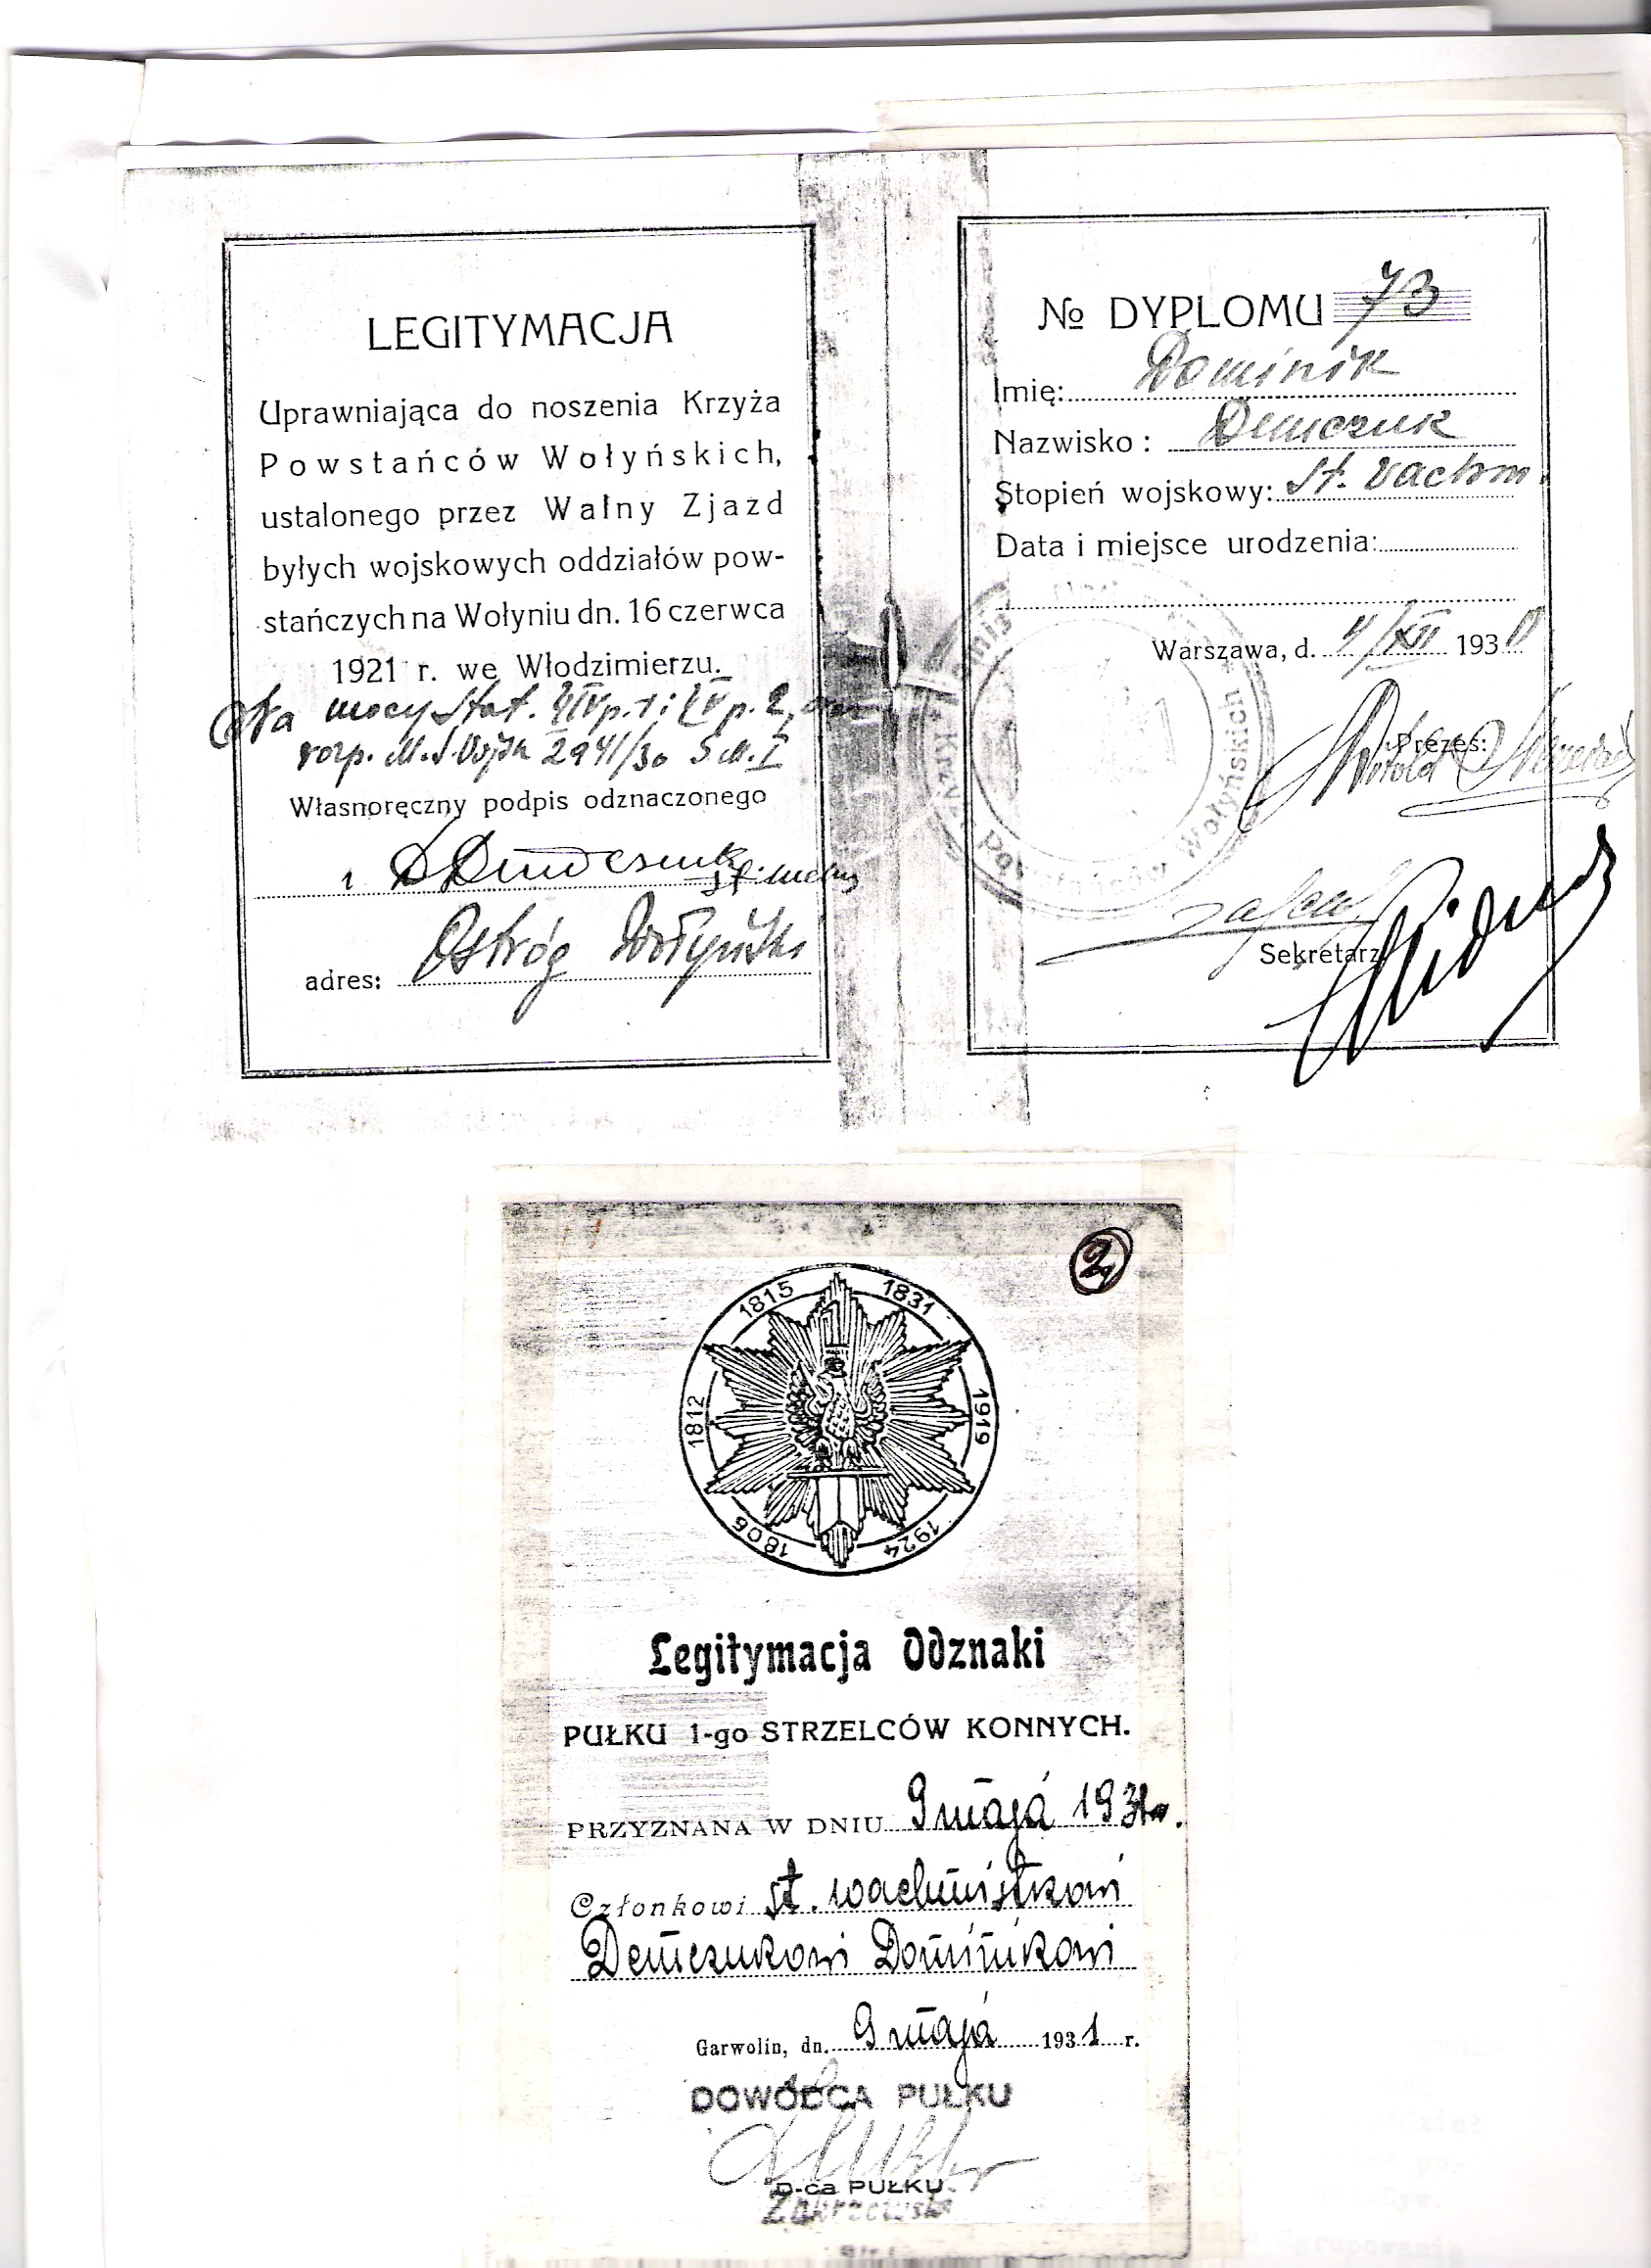 LEGITYMACJA
Uprawniająca do noszenia Krzyża
Powstańców Wołyńskich,
ustalonego przez Walny Zjazd
byłych wojskowych oddziałów pow-
stańczych na Wołyniu dn. 16 czerwca
1921 r. we Włodzimierzu.
Na mocy Stat. p. 1 i p. 2
rozp. M.S.Wojsk 2941/30 I
Własnoręczny podpis odznaczonego
adres: Ostróg Wołyński
№ DYPLOMU 73
Imię: Dominik
Nazwisko: Demczuk
Stopień wojskowy: St. wachm.
Data i miejsce urodzenia:
Warszawa, d. 4/XII 1930
Prezes:
Witold
Krzyża Powstańców Wołyńskich
Sekretarz
2
1806 1812 1815 1831 1919 1924
1
Legitymacja Odznaki
PUŁKU 1-go STRZELCÓW KONNYCH.
PRZYZNANA W DNIU 9 maja 1931 r.
Członkowi st. wachmistrzowi
Demczukowi Dominikowi
Garwolin, dn. 9 maja 1931 r.
DOWÓDCA PUŁKU
D-ca PUŁKU
ział
po-
Dyw.
grupowanie